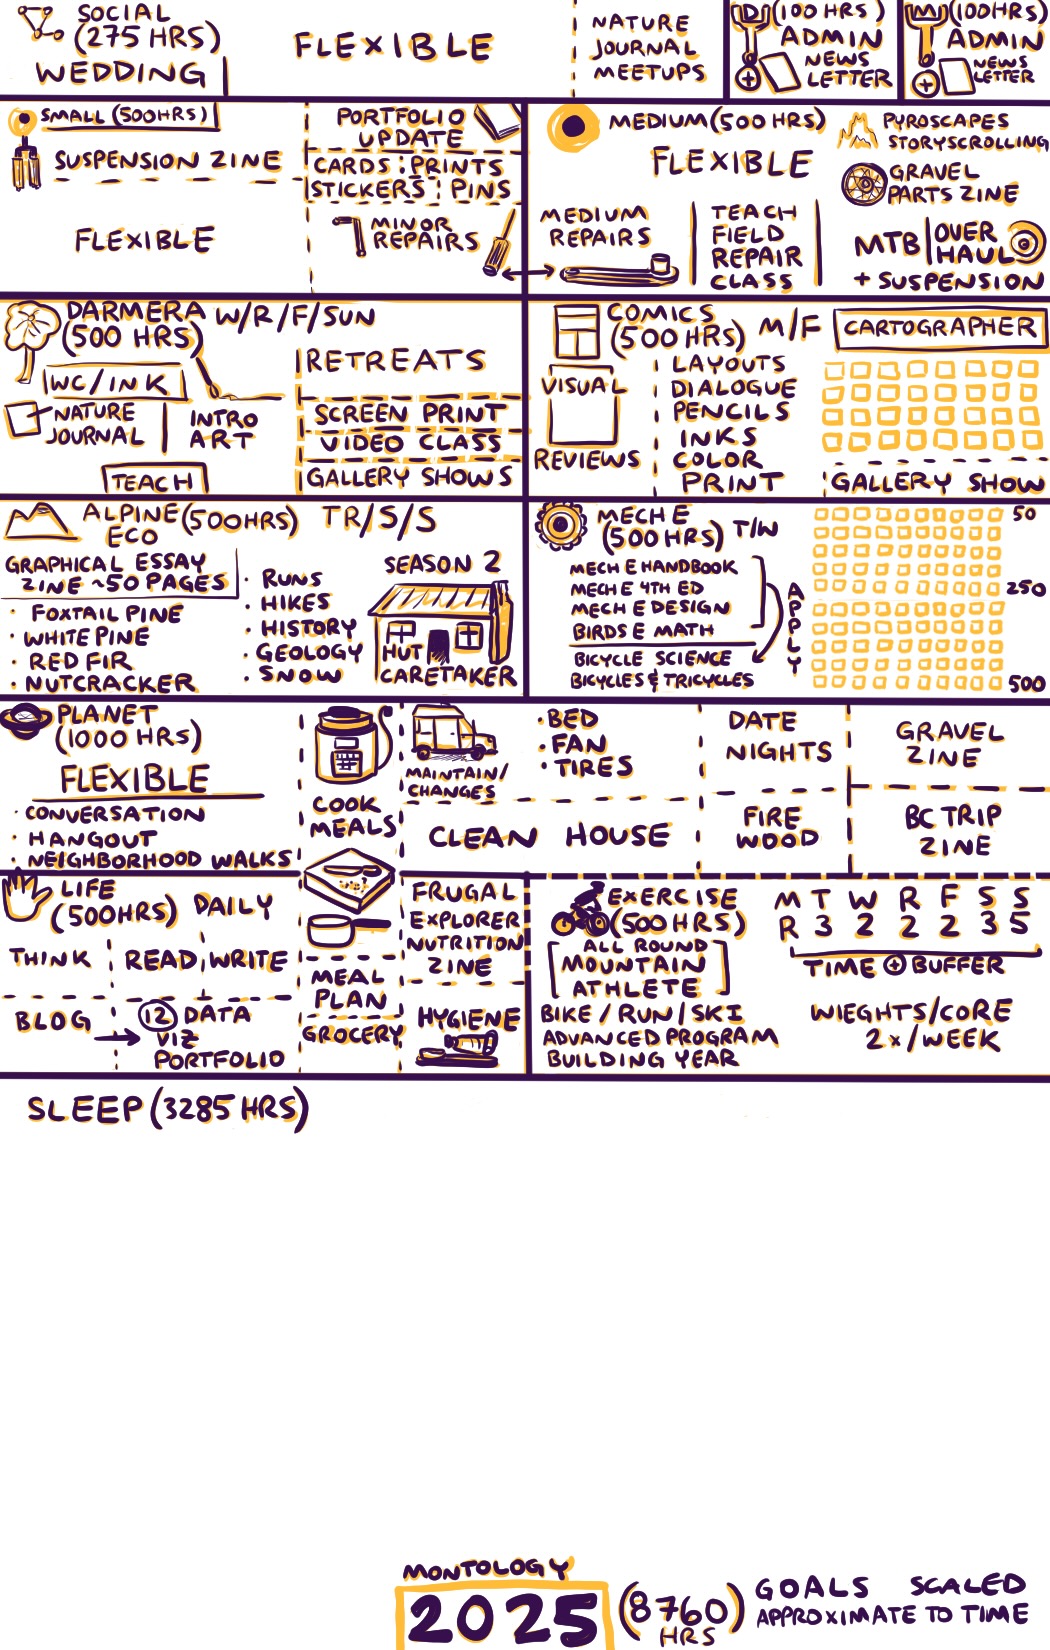 SOCIAL
(275 HRS)
WEDDING
FLEXIBLE
NATURE
JOURNAL
MEETUPS
D (100 HRS)
ADMIN
NEWS
LETTER
M (100HRS)
ADMIN
NEWS
LETTER
SMALL (500HRS)
SUSPENSION ZINE
FLEXIBLE
PORTFOLIO
UPDATE
CARDS PRINTS
STICKERS PINS
MINOR
REPAIRS
MEDIUM (500 HRS)
FLEXIBLE
PYROSCAPES
STORYSCROLLING
GRAVEL
PARTS ZINE
MEDIUM
REPAIRS
TEACH
FIELD
REPAIR
CLASS
MTB OVER
HAUL
+ SUSPENSION
DARMERA W/R/F/SUN
(500 HRS)
WC/INK
NATURE
JOURNAL
INTRO
ART
TEACH
RETREATS
SCREEN PRINT
VIDEO CLASS
GALLERY SHOWS
COMICS
(500 HRS) M/F
CARTOGRAPHER
VISUAL
REVIEWS
LAYOUTS
DIALOGUE
PENCILS
INKS
COLOR
PRINT
GALLERY SHOW
ALPINE (500HRS) TR/S/S
ECO
GRAPHICAL ESSAY
ZINE ~50 PAGES
• FOXTAIL PINE
• WHITE PINE
• RED FIR
• NUTCRACKER
• RUNS
• HIKES
• HISTORY
• GEOLOGY
• SNOW
SEASON 2
HUT
CARETAKER
MECH E
(500 HRS) T/W
MECH E HANDBOOK
MECH E 4TH ED
MECH E DESIGN
BIRDS E MATH
BICYCLE SCIENCE
BICYCLES & TRICYCLES
APPLY
50
250
500
PLANET
(1000 HRS)
FLEXIBLE
• CONVERSATION
• HANGOUT
• NEIGHBORHOOD WALKS
COOK
MEALS
MAINTAIN/
CHANGES
• BED
• FAN
• TIRES
CLEAN HOUSE
DATE
NIGHTS
FIRE
WOOD
GRAVEL
ZINE
BC TRIP
ZINE
LIFE
(500HRS) DAILY
THINK READ WRITE
BLOG
12 DATA
VIZ
PORTFOLIO
MEAL
PLAN
GROCERY
FRUGAL
EXPLORER
NUTRITION
ZINE
HYGIENE
EXERCISE
(500 HRS)
ALL ROUND
MOUNTAIN
ATHLETE
BIKE / RUN / SKI
ADVANCED PROGRAM
BUILDING YEAR
M T W R F S S
R 3 2 2 2 3 5
TIME + BUFFER
WIEGHTS/CORE
2x/WEEK
SLEEP (3285 HRS)
MONTOLOGY
2025
(8760)
HRS
GOALS SCALED
APPROXIMATE TO TIME